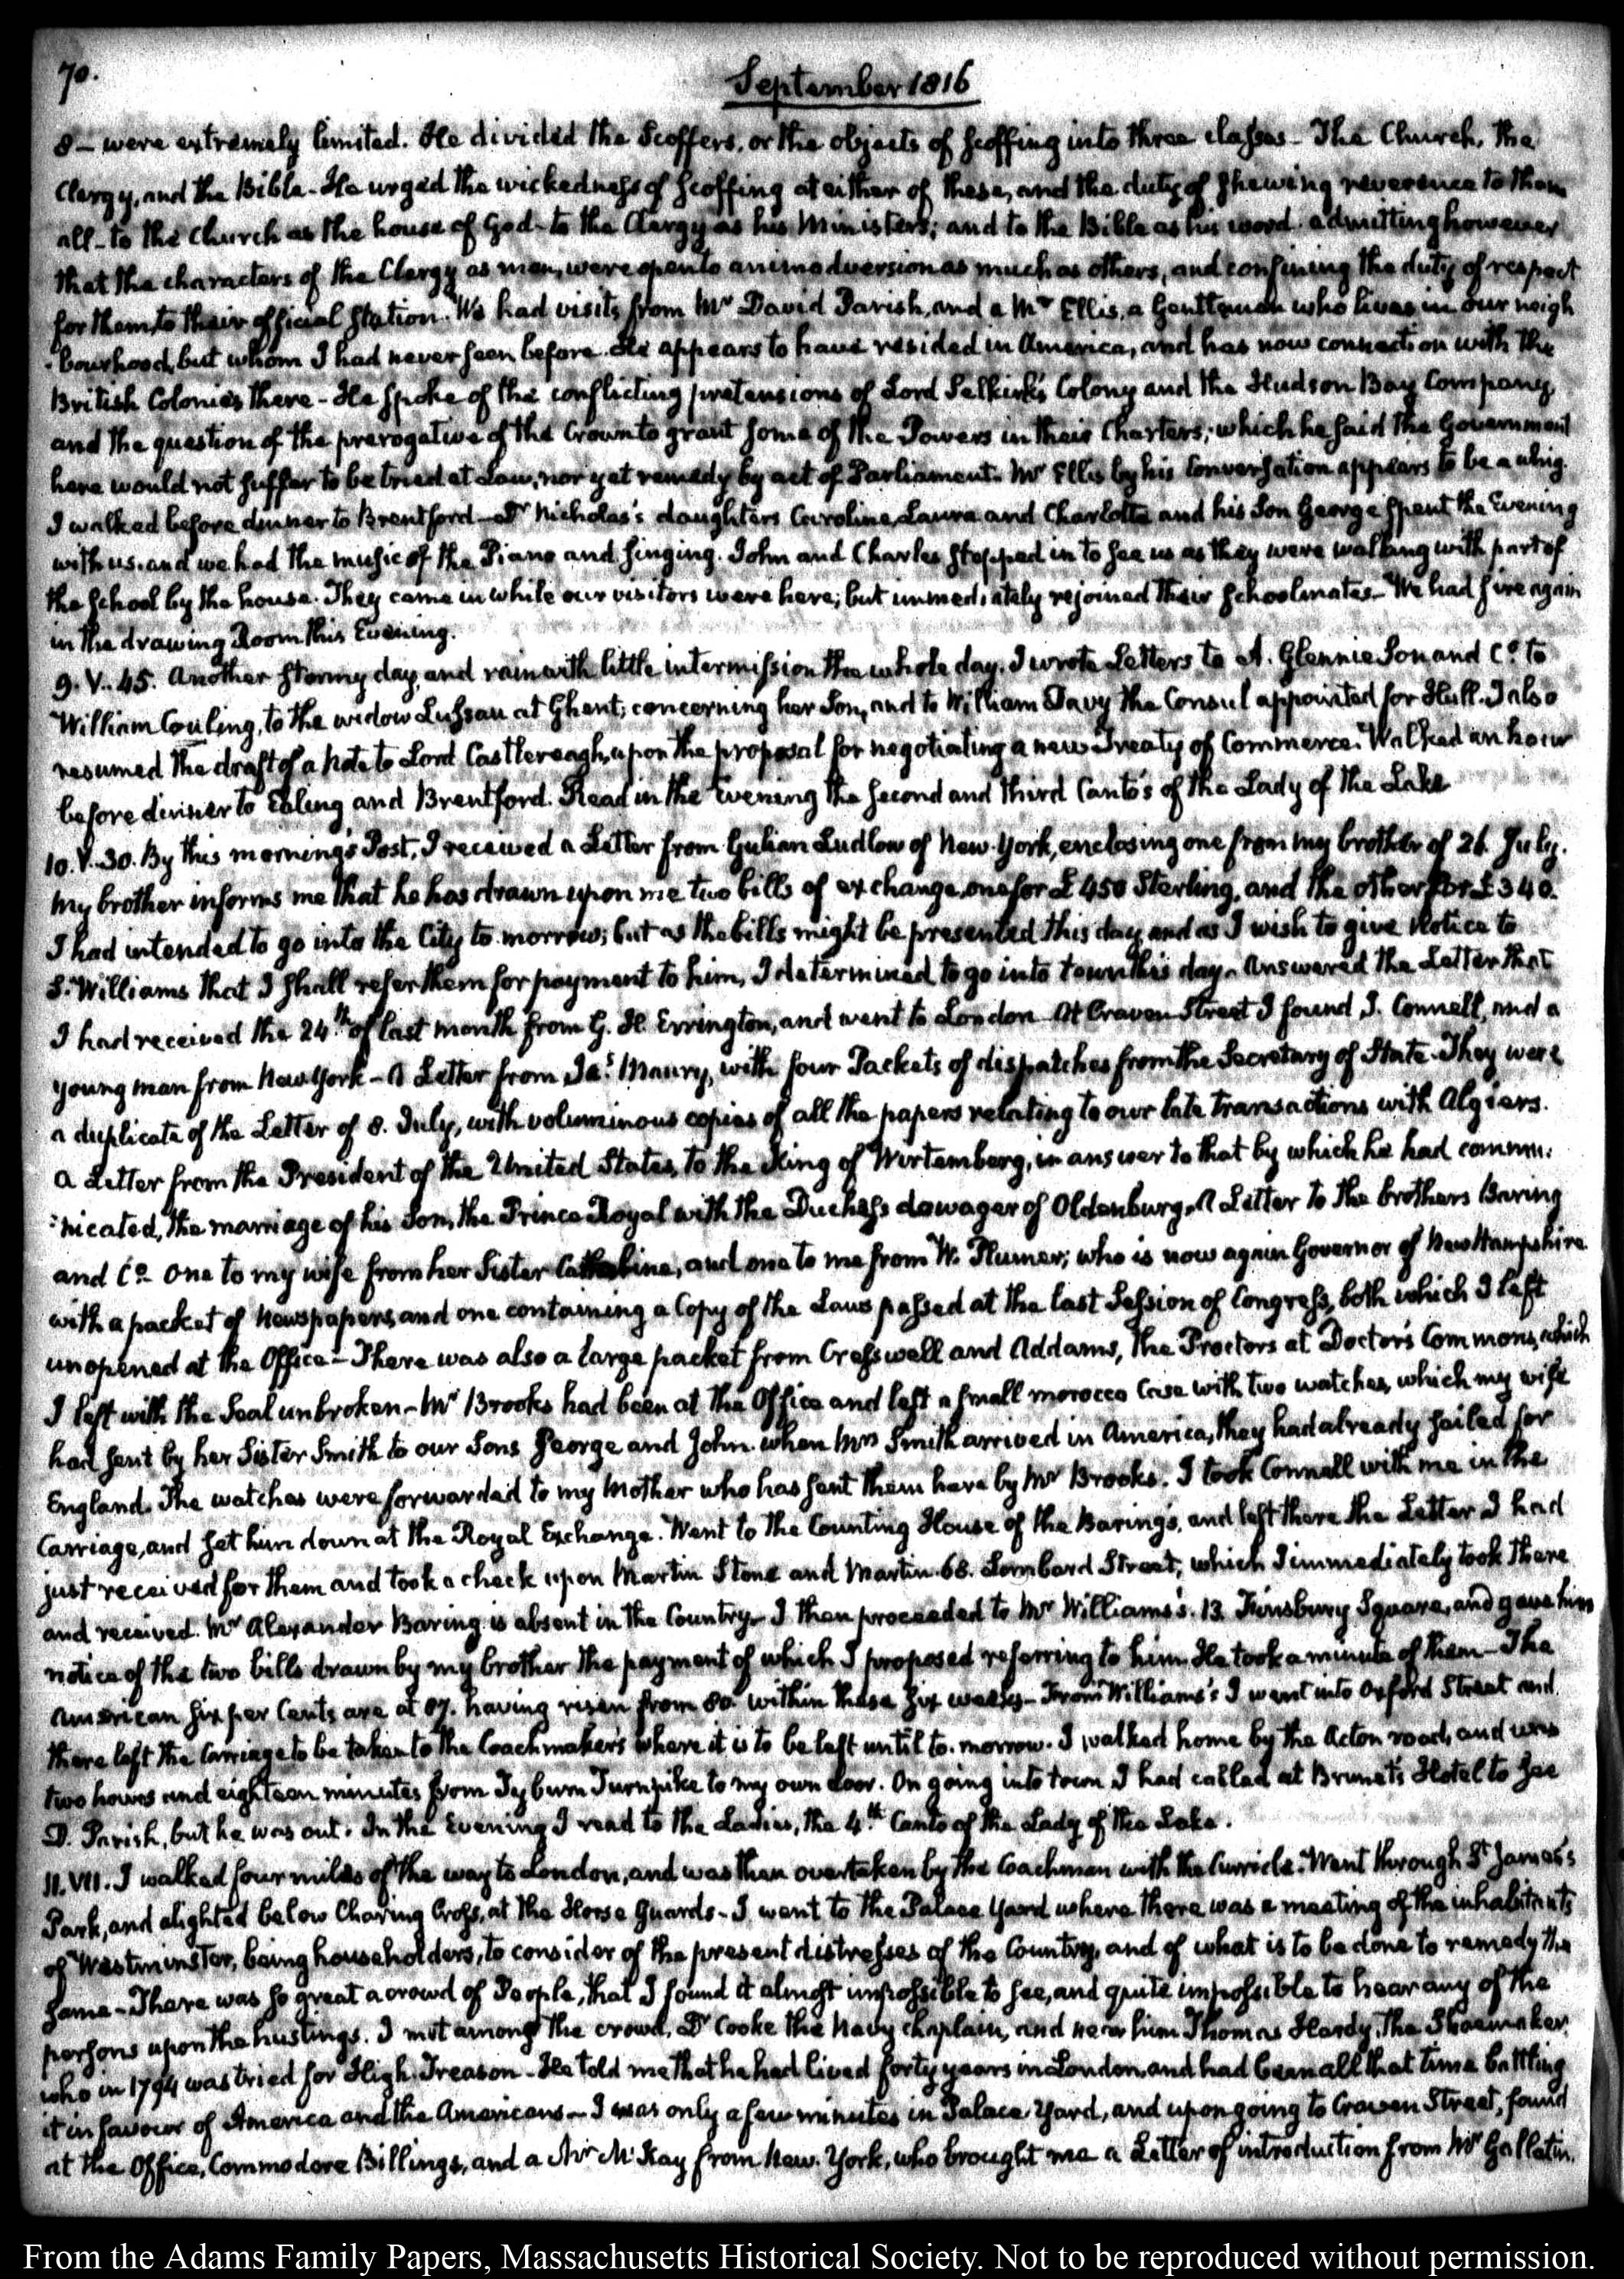 70.
September 1816
8 — were extremely limited. He divided the Scoffers, or the objects of scoffing into three classes — The Church, the
Clergy, and the Bible — He urged the wickedness of scoffing at either of these, and the duty of shewing reverence to them
all — to the Church as the house of God — to the Clergy as his Ministers; and to the Bible as his word. admitting however
that the characters of the Clergy as men, were open to animadversion as much as others, and confining the duty of respect
for them, to their official station. We had visits from Mr David Parish, and a Mr Ellis, a Gentleman who lives in our neigh
-bourhood, but whom I had never seen before. He appears to have resided in America, and has now connection with the
British Colonies there — He spoke of the conflicting pretensions of Lord Selkirk's Colony and the Hudson Bay Company,
and the question of the prerogative of the Crown to grant some of the Powers in their Charters; which he said the Government
here would not suffer to be tried at Law, nor yet remedy by act of Parliament. Mr Ellis by his conversation appears to be a whig.
I walked before dinner to Brentford — Dr Nicholas's daughters Caroline, Laura and Charlotte and his Son George spent the Evening
with us. and we had the music of the Piano and singing. John and Charles stopped in to see us as they were walking with part of
the School by the house. They came in while our visitors were here; but immediately rejoined their Schoolmates — We had fire again
in the drawing Room this Evening.
9. V. 45. Another stormy day, and rain with little intermission the whole day. I wrote Letters to A. Glennie Son and Co. to
William Couling, to the widow Lussau at Ghent; concerning her Son, and to William Davy the Consul appointed for Hull. I also
resumed the draft of a Note to Lord Castlereagh, upon the proposal for negotiating a new Treaty of Commerce. Walked an hour
before dinner to Ealing and Brentford. Read in the Evening the second and third Canto's of the Lady of the Lake
10. V. 30. By this morning's Post, I received a Letter from Gulian Ludlow of New-York, enclosing one from my brother of 26 July.
My brother informs me that he has drawn upon me two bills of exchange, one for £450 Sterling, and the other for £340.
I had intended to go into the City to-morrow; but as the bills might be presented this day, and as I wish to give Notice to
S. Williams that I shall refer them for payment to him, I determined to go into town this day. Answered the Letter that
I had received the 24th of last month from G. H. Errington, and went to London — At Craven Street I found J. Connell, and a
young man from New York — A Letter from Jas. Maury, with four Packets of dispatches from the Secretary of State. They were
a duplicate of the Letter of 8. July, with voluminous copies of all the papers relating to our late transactions with Algiers.
A Letter from the President of the United States, to the King of Wirtemberg, in answer to that by which he had commu-
-nicated, the marriage of his Son, the Prince Royal with the Duchess dowager of Oldenburg. A Letter to the brothers Baring
and Co. One to my wife from her Sister Catherine, and one to me from W. Plumer; who is now again Governor of New Hampshire
with a packet of Newspapers, and one containing a Copy of the Laws passed at the last Session of Congress, both which I left
unopened at the Office — There was also a large packet from Cresswell and Addams, the Proctors at Doctor's Commons, which
I left with the Seal unbroken — Mr Brooks had been at the Office and left a small morocco Case with two watches, which my wife
had sent by her Sister Smith to our Sons George and John. when Mrs Smith arrived in America, they had already sailed for
England. The watches were forwarded to my Mother who has sent them here by Mr Brooks. I took Connell with me in the
Carriage, and set him down at the Royal Exchange. Went to the Counting House of the Baring's, and left there the Letter I had
just received for them and took a check upon Martin Stone and Martin. 68. Lombard Street, which I immediately took there
and received. Mr Alexander Baring is absent in the Country — I then proceeded to Mr Williams's. 13. Finsbury Square, and gave him
notice of the two bills drawn by my brother the payment of which I proposed referring to him. He took a minute of them — The
American six per Cents are at 87. having risen from 80. within these six weeks — From Williams's I went into Oxford Street and
there left the Carriage to be taken to the Coachmaker's where it is to be left until to-morrow. I walked home by the Acton road, and was
two hours and eighteen minutes from Tyburn Turnpike to my own door. On going into town I had called at Brunet's Hotel to see
D. Parish, but he was out. In the Evening I read to the Ladies, the 4th Canto of the Lady of the Lake.
11. VII. I walked four miles of the way to London, and was then overtaken by the Coachman with the Curricle. Went through St James's
Park, and alighted below Charing Cross, at the Horse Guards — I went to the Palace Yard where there was a meeting of the inhabitants
of Westminster, being householders, to consider of the present distresses of the Country, and of what is to be done to remedy the
same — There was so great a crowd of People, that I found it almost impossible to see, and quite impossible to hear any of the
persons upon the hustings. I met among the crowd, Dr Cooke the Navy chaplain, and near him Thomas Hardy, the Shoemaker
who in 1794 was tried for High Treason — He told me that he had lived forty years in London, and had been all that time battling
it in favour of America and the Americans — I was only a few minutes in Palace Yard, and upon going to Craven Street, found
at the Office, Commodore Billings, and a Mr McKay from New-York, who brought me a Letter of introduction from Mr Gallatin.
From the Adams Family Papers, Massachusetts Historical Society. Not to be reproduced without permission.